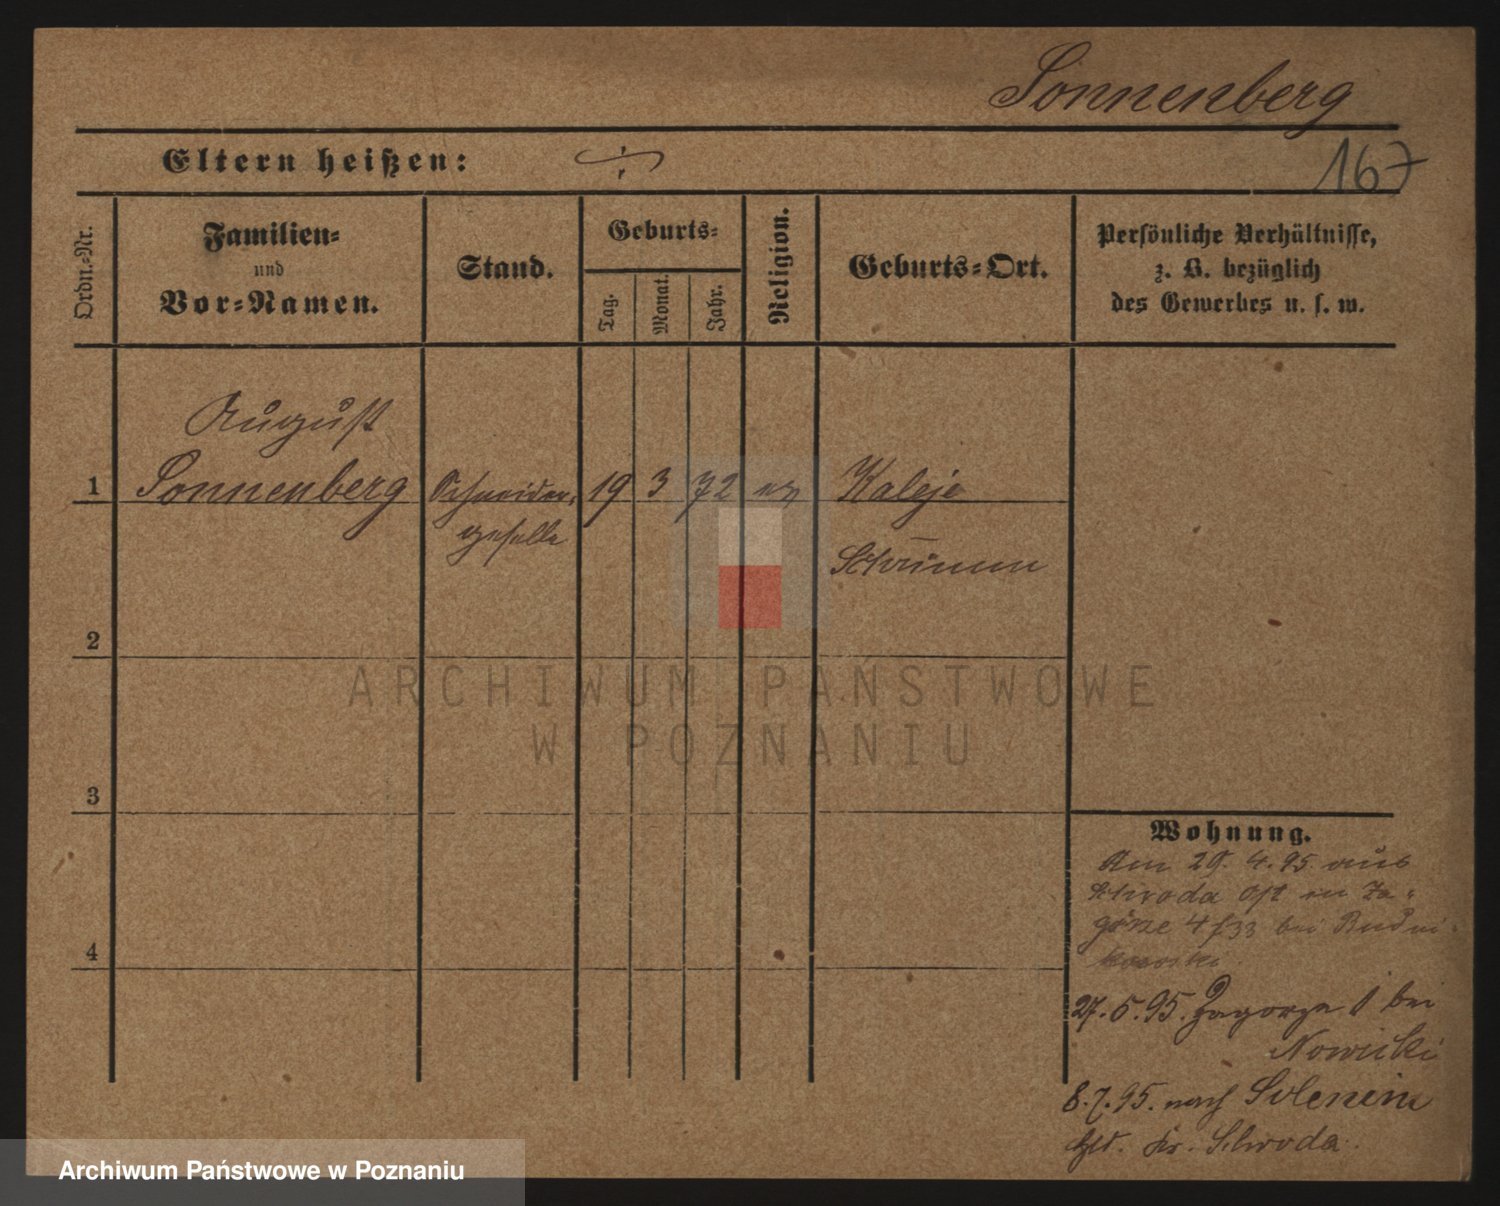 Sonnenberg
Eltern heißen: ÷
167
Ordn.-Nr.
Familien-
und
Vor-Namen.
Stand.
Geburts-
Tag.
Monat.
Jahr.
Religion.
Geburts-Ort.
Persönliche Verhältnisse,
z. B. bezüglich
des Gewerbes u. s. w.
August
1 Sonnenberg Schneider- 19 3 72 ev Kaleje
geselle
Schrimm
2
3
4
ARCHIWUM PAŃSTWOWE
W POZNANIU
Wohnung.
Am 29. 4. 95. aus
Schroda Ost in Za-
gorze 4 bei Rudni-
kowski
27. 5. 95. Zagorze 1 bei
Nowicki
8. 7. 95. nach
Kr. Schroda.
Archiwum Państwowe w Poznaniu